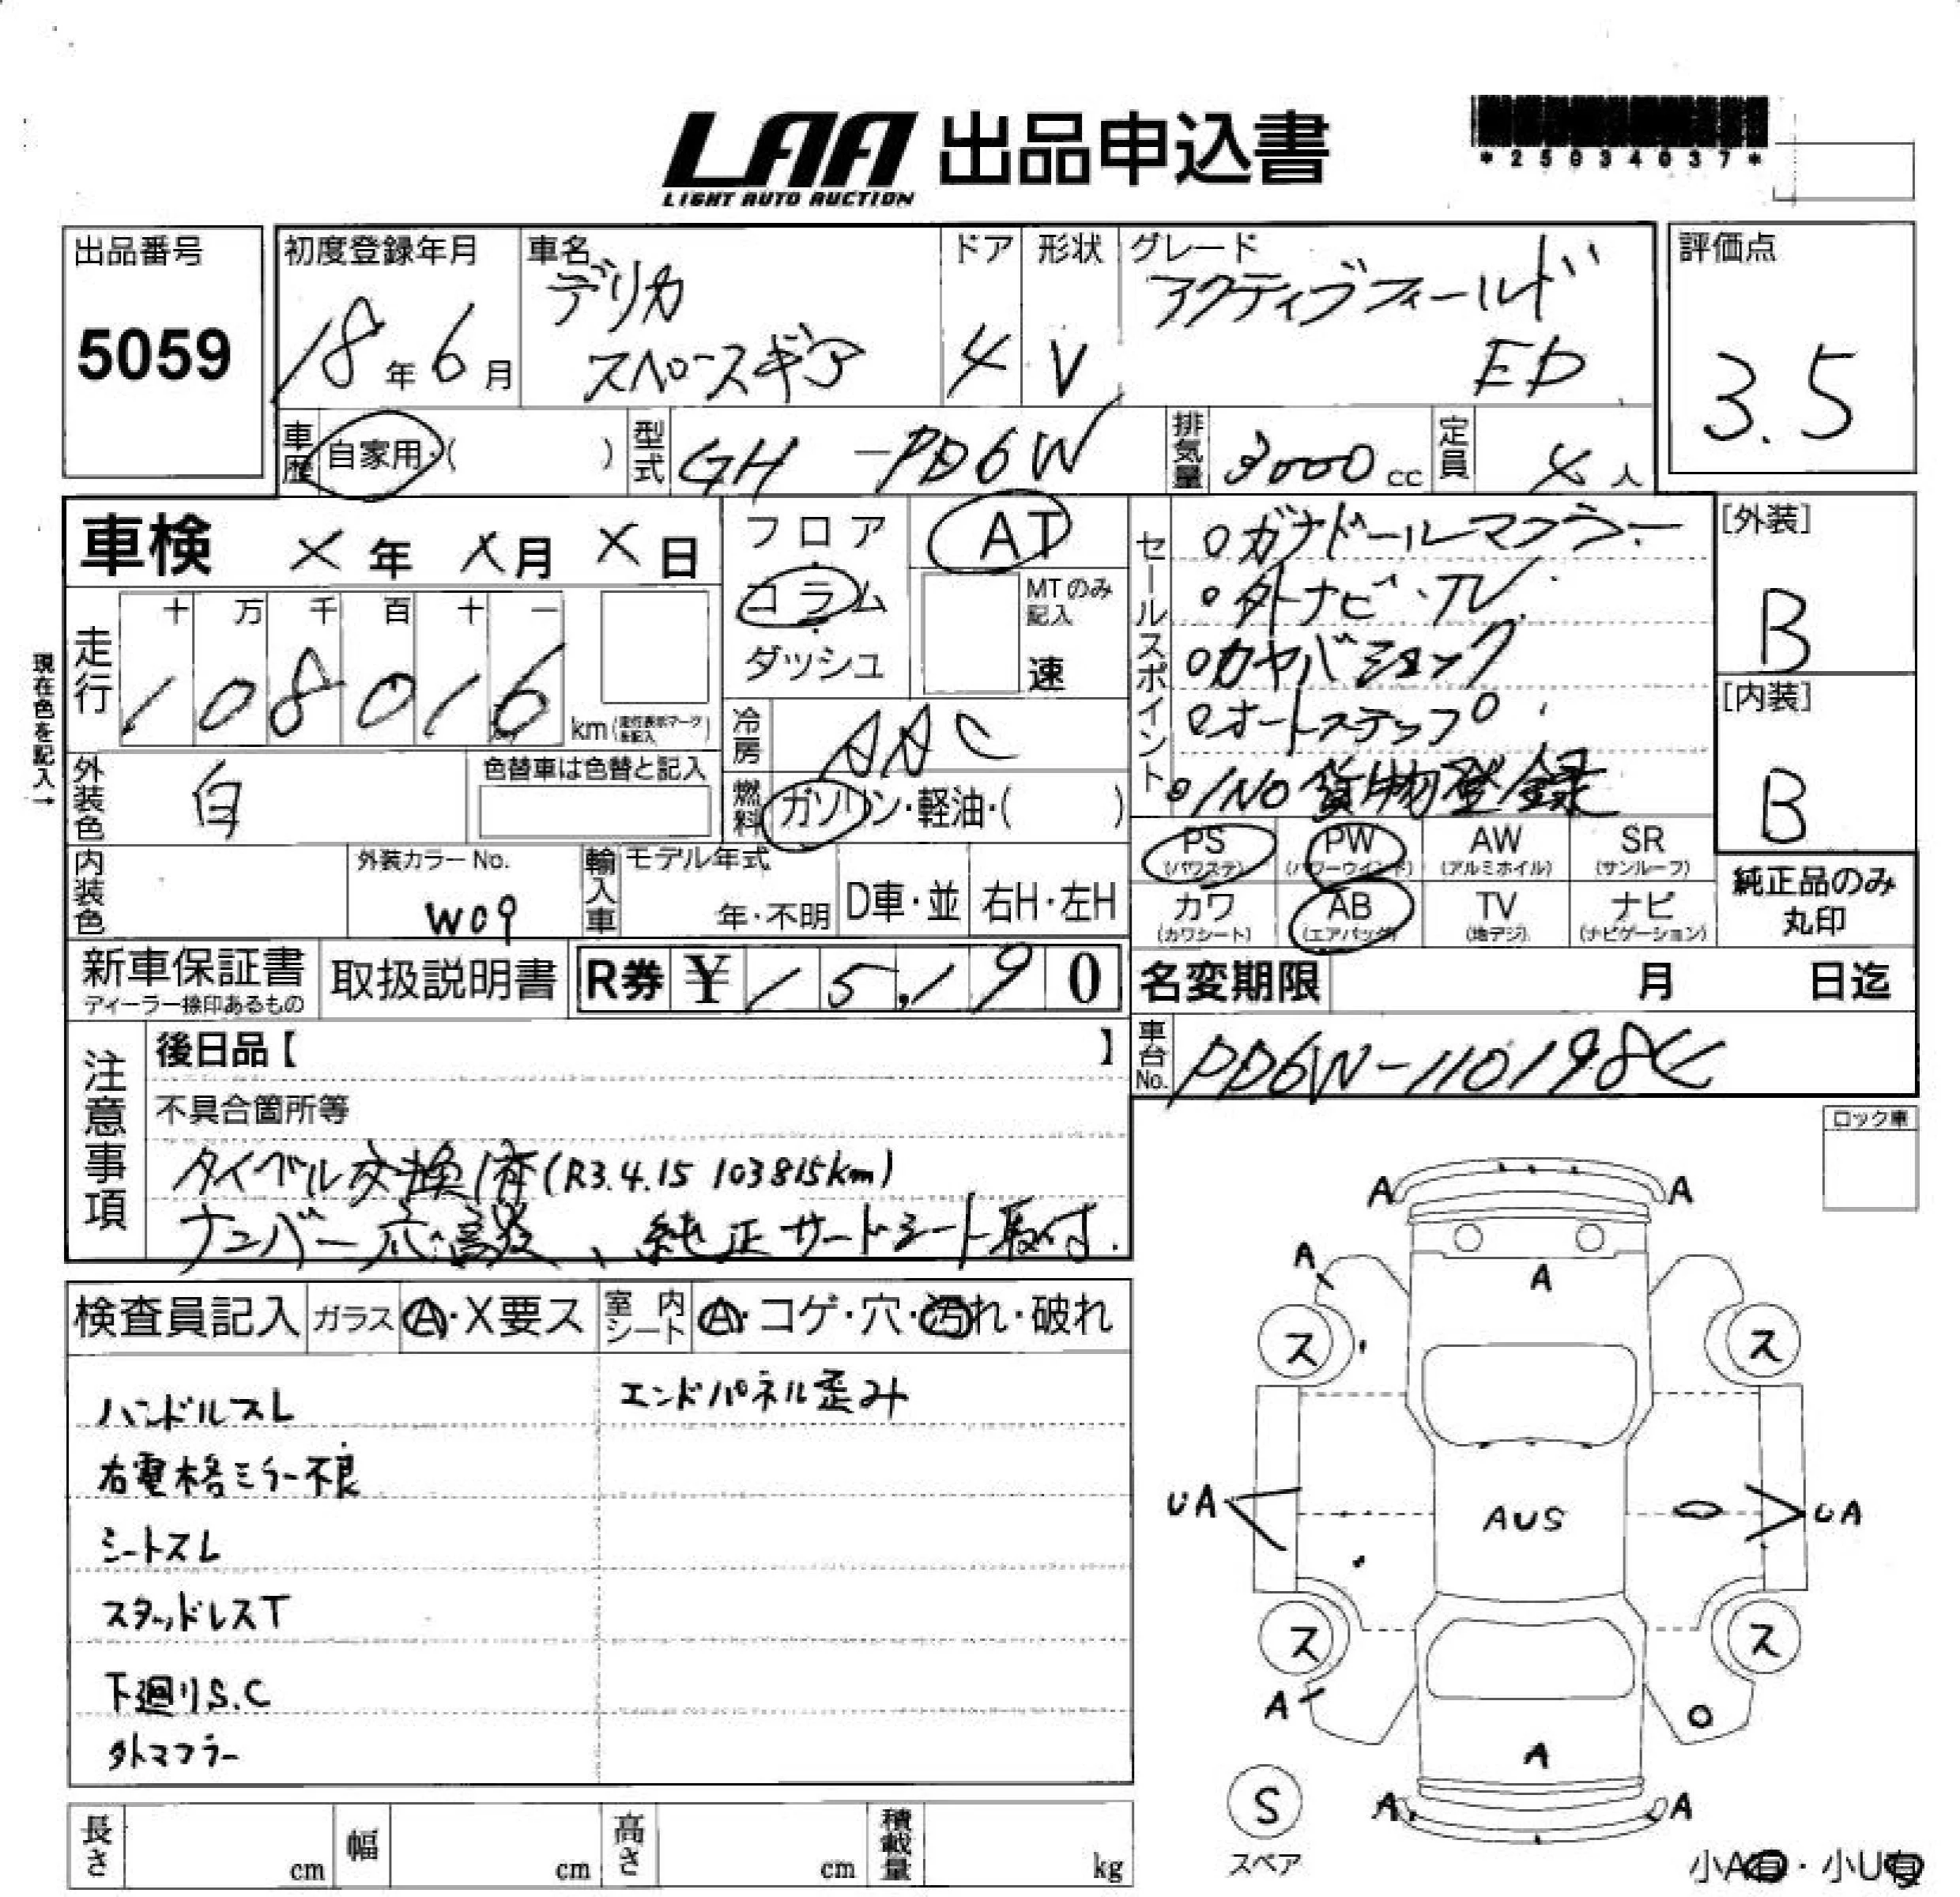 LAA 出品申込書
LIGHT AUTO AUCTION
*25034037*
出品番号
5059
初度登録年月
18年6月
車名
デリカ
スペースギア
ドア
4
形状
V
グレード
アクティブフィールド
ED
評価点
3.5
車歴 自家用・( )
型式 GH -PD6W
排気量 3000cc
定員 4人
車検 X年 X月 X日
フロア
コラム
ダッシュ
AT
MTのみ
記入
速
現在色を記入→
走行
十 万 千 百 十 一
1 0 8 0 1 6 km
冷房 AAC
外装色 白
色替車は色替と記入
燃料 ガソリン・軽油・( )
セールスポイント
o ガナドールマフラー
o 外ナビ・TV.
o カヤバショック
o オートステップ
o 1NO 貨物登録
[外装]
B
[内装]
B
PS
(パワステ)
PW
(パワーウインド)
AW
(アルミホイル)
SR
(サンルーフ)
カワ
(カワシート)
AB
(エアバッグ)
TV
(地デジ)
ナビ
(ナビゲーション)
純正品のみ
丸印
内装色
外装カラーNo.
W09
輸入車
モデル年式
年・不明
D車・並
右H・左H
新車保証書
ディーラー捺印あるもの
取扱説明書
R券 ¥15,190
名変期限 月 日迄
車台No. PD6W-110198
注意事項
後日品【 】
不具合箇所等
タイベル交換済(R3.4.15 103815km)
ナンバー応談、純正サードシート取付.
ロック車
検査員記入
ガラス A・X要ス
室内シート A・コゲ・穴・汚れ・破れ
ハンドルスレ
エンドパネル歪み
右電格ミラー不良
シートスレ
スタッドレスT
下廻りS.C
外マフラー
A A
A A
ス ス
UA AUS UA
ス ス
A
A
A A
S
スペア
小A有・小U有
長さ cm
幅 cm
高さ cm
積載量 kg